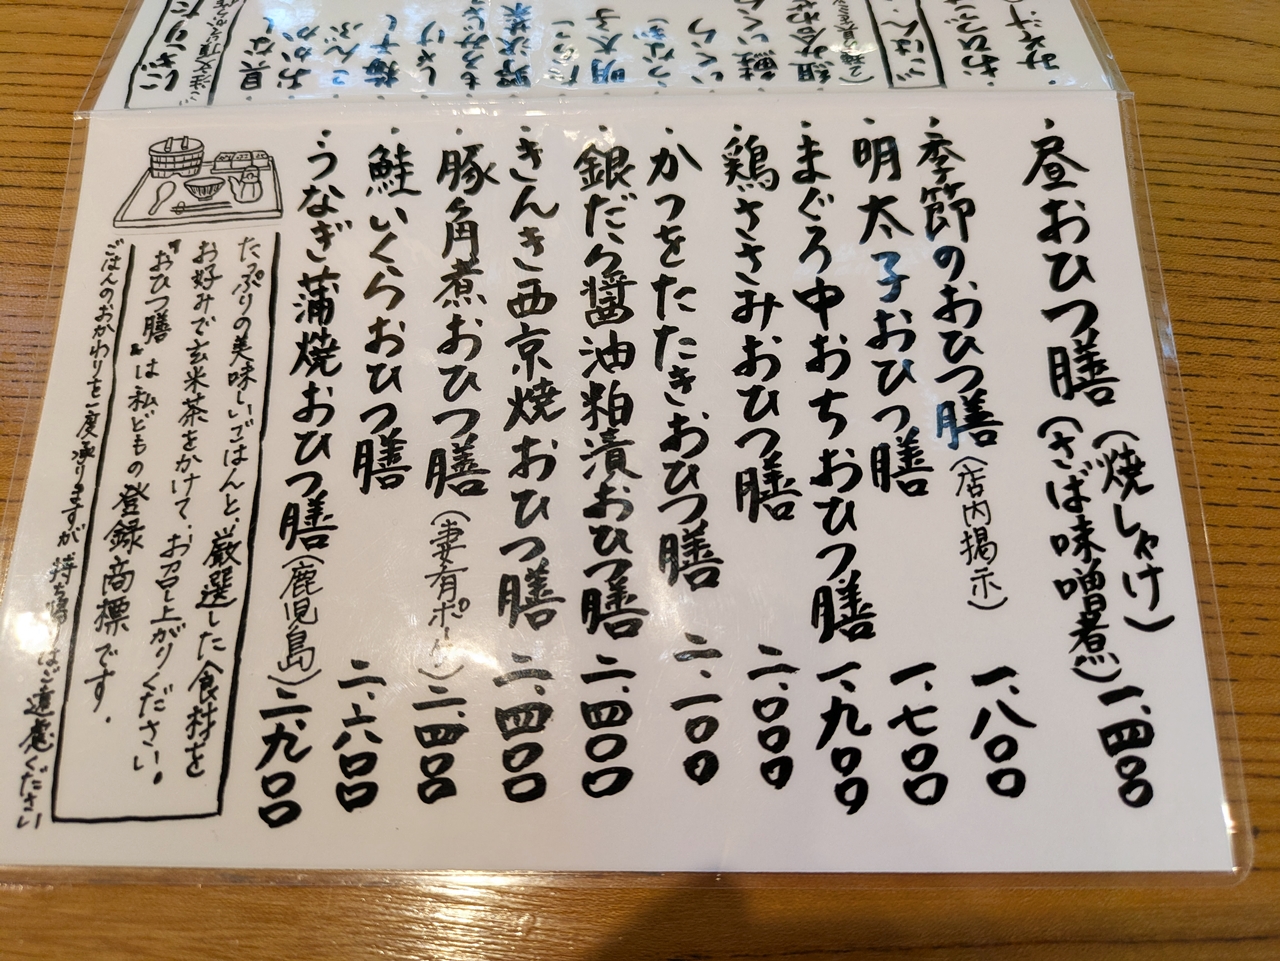 昼おひつ膳(焼しゃけ)(さば味噌煮)一、四〇〇
季節のおひつ膳(店内掲示)一、八〇〇
明太子おひつ膳 一、七〇〇
まぐろ中おちおひつ膳 一、九〇〇
鶏ささみおひつ膳 二、〇〇〇
かつをたたきおひつ膳 二、一〇〇
銀だら醤油粕漬おひつ膳 二、四〇〇
きんき西京焼おひつ膳 二、四〇〇
豚角煮おひつ膳(妻有ポーク)二、四〇〇
鮭いくらおひつ膳 二、六〇〇
うなぎ蒲焼おひつ膳(鹿児島)二、九〇〇
たっぷりの美味しいごはんと、厳選した食材を
お好みで玄米茶をかけて、お召し上がりください。
"おひつ膳"は私どもの登録商標です。
ごはんのおかわりを一度承りますが、持ち帰りはご遠慮ください
みそ汁
おひつご
ごはん
組合わせ
鮭いくら
いくら
うなぎ
明太子
野沢菜
もろみじ
しそ
梅干し
こんぶ
おかか
具なし
にぎりた